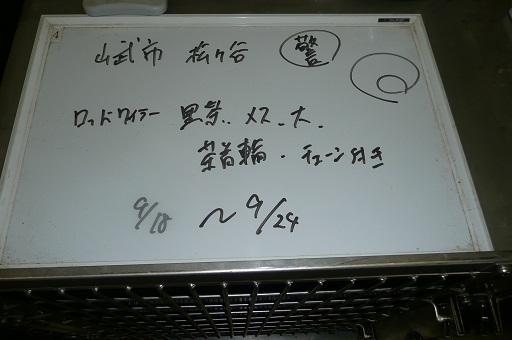 4
山武市 松ヶ谷 警
ロットワイラー 黒茶. メス. 大.
茶首輪・チェーン付き
9/18 〜 9/24